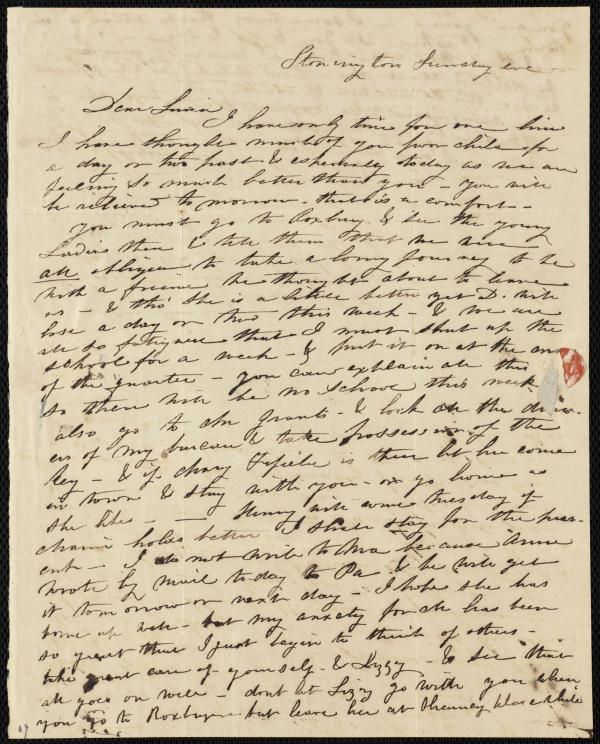 Stonington Sunday eve
Dear Lucia
I have only time for one line
I have thought much of you poor child for
a day or two past & especially today as we are
feeling so much better than you - you will
be relieved to morrow. that is a comfort -
You must go to Roxbury & see the young
Ladies then & tell them that we were
all obliged to take a long journey to be
with a friend we thought about to leave
us - & tho' she is a little better yet D. will
lose a day or two this week - & we are
all so fatigued that I must shut up the
school for a week - & put it on at the end
of the quarter - you can explain all this
so there will be no school this week
also go to Mrs Grants - & look at the draw-
ers of my bureau & take possession of the
key - & if Mary is there let her come
in town & stay with you - or go home as
she likes — Henry will come Tuesday if
holds better I shall stay for the pres-
ent - I do not write to Ma because Anne
wrote by mail to-day to Pa & he will get
it tomorrow or next day - I hope she has
borne up well - but my anxiety for all has been
so great that I just begin to think of others -
take great care of yourself & Lizzy - & see that
all goes on well - dont let Lizzy go with you when
you go to Roxbury - but leave her at Chauncy place while